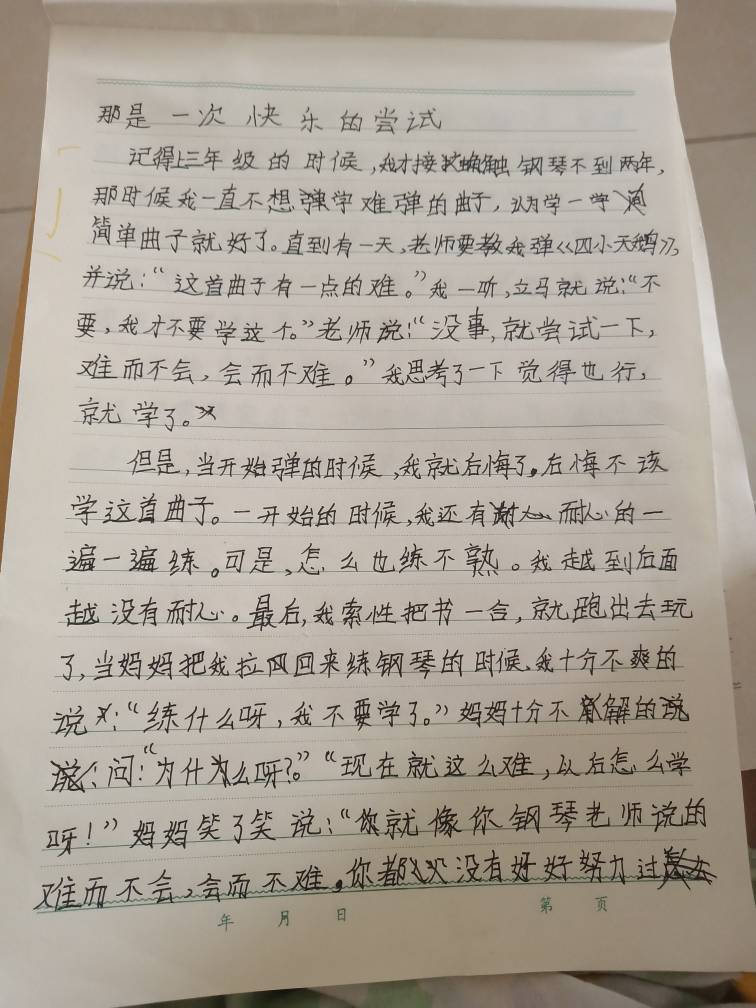 那是一次快乐的尝试
记得上三年级的时候,我才接触钢琴不到两年,
那时候我一直不想学难弹的曲子,认为学一学
简单曲子就好了。直到有一天,老师要教我弹《四小天鹅》,
并说:“这首曲子有一点的难。”我一听,立马就说:“不
要,我才不要学这个。”老师说:“没事,就尝试一下,
难而不会,会而不难。”我思考了一下觉得也行,
就学了。
但是,当开始弹的时候,我就后悔了。后悔不该
学这首曲子。一开始的时候,我还有耐心的一
遍一遍练。可是,怎么也练不熟。我越到后面
越没有耐心。最后,我索性把书一合,就跑出去玩
了,当妈妈把我拉回来练钢琴的时候,我十分不爽的
说:“练什么呀,我不要学了。”妈妈十分不解的
问:“为什么呀?”“现在就这么难,以后怎么学
呀!”妈妈笑了笑说:“就像你钢琴老师说的
难而不会,会而不难。你都没有好好努力过
年 月 日 第 页